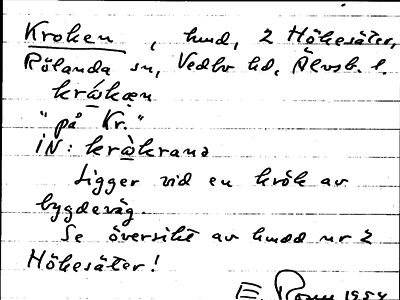 Kroken, hmd, 2 Hökesäter,
Rölanda sn, Vedbo hd, Älvsb. l.
krẃkæn
"på Kr."
IN: krẁkrana
Ligger vid en krök av
bygdeväg.
Se översikt av hmdd nr 2
Hökesäter!
E. 1954